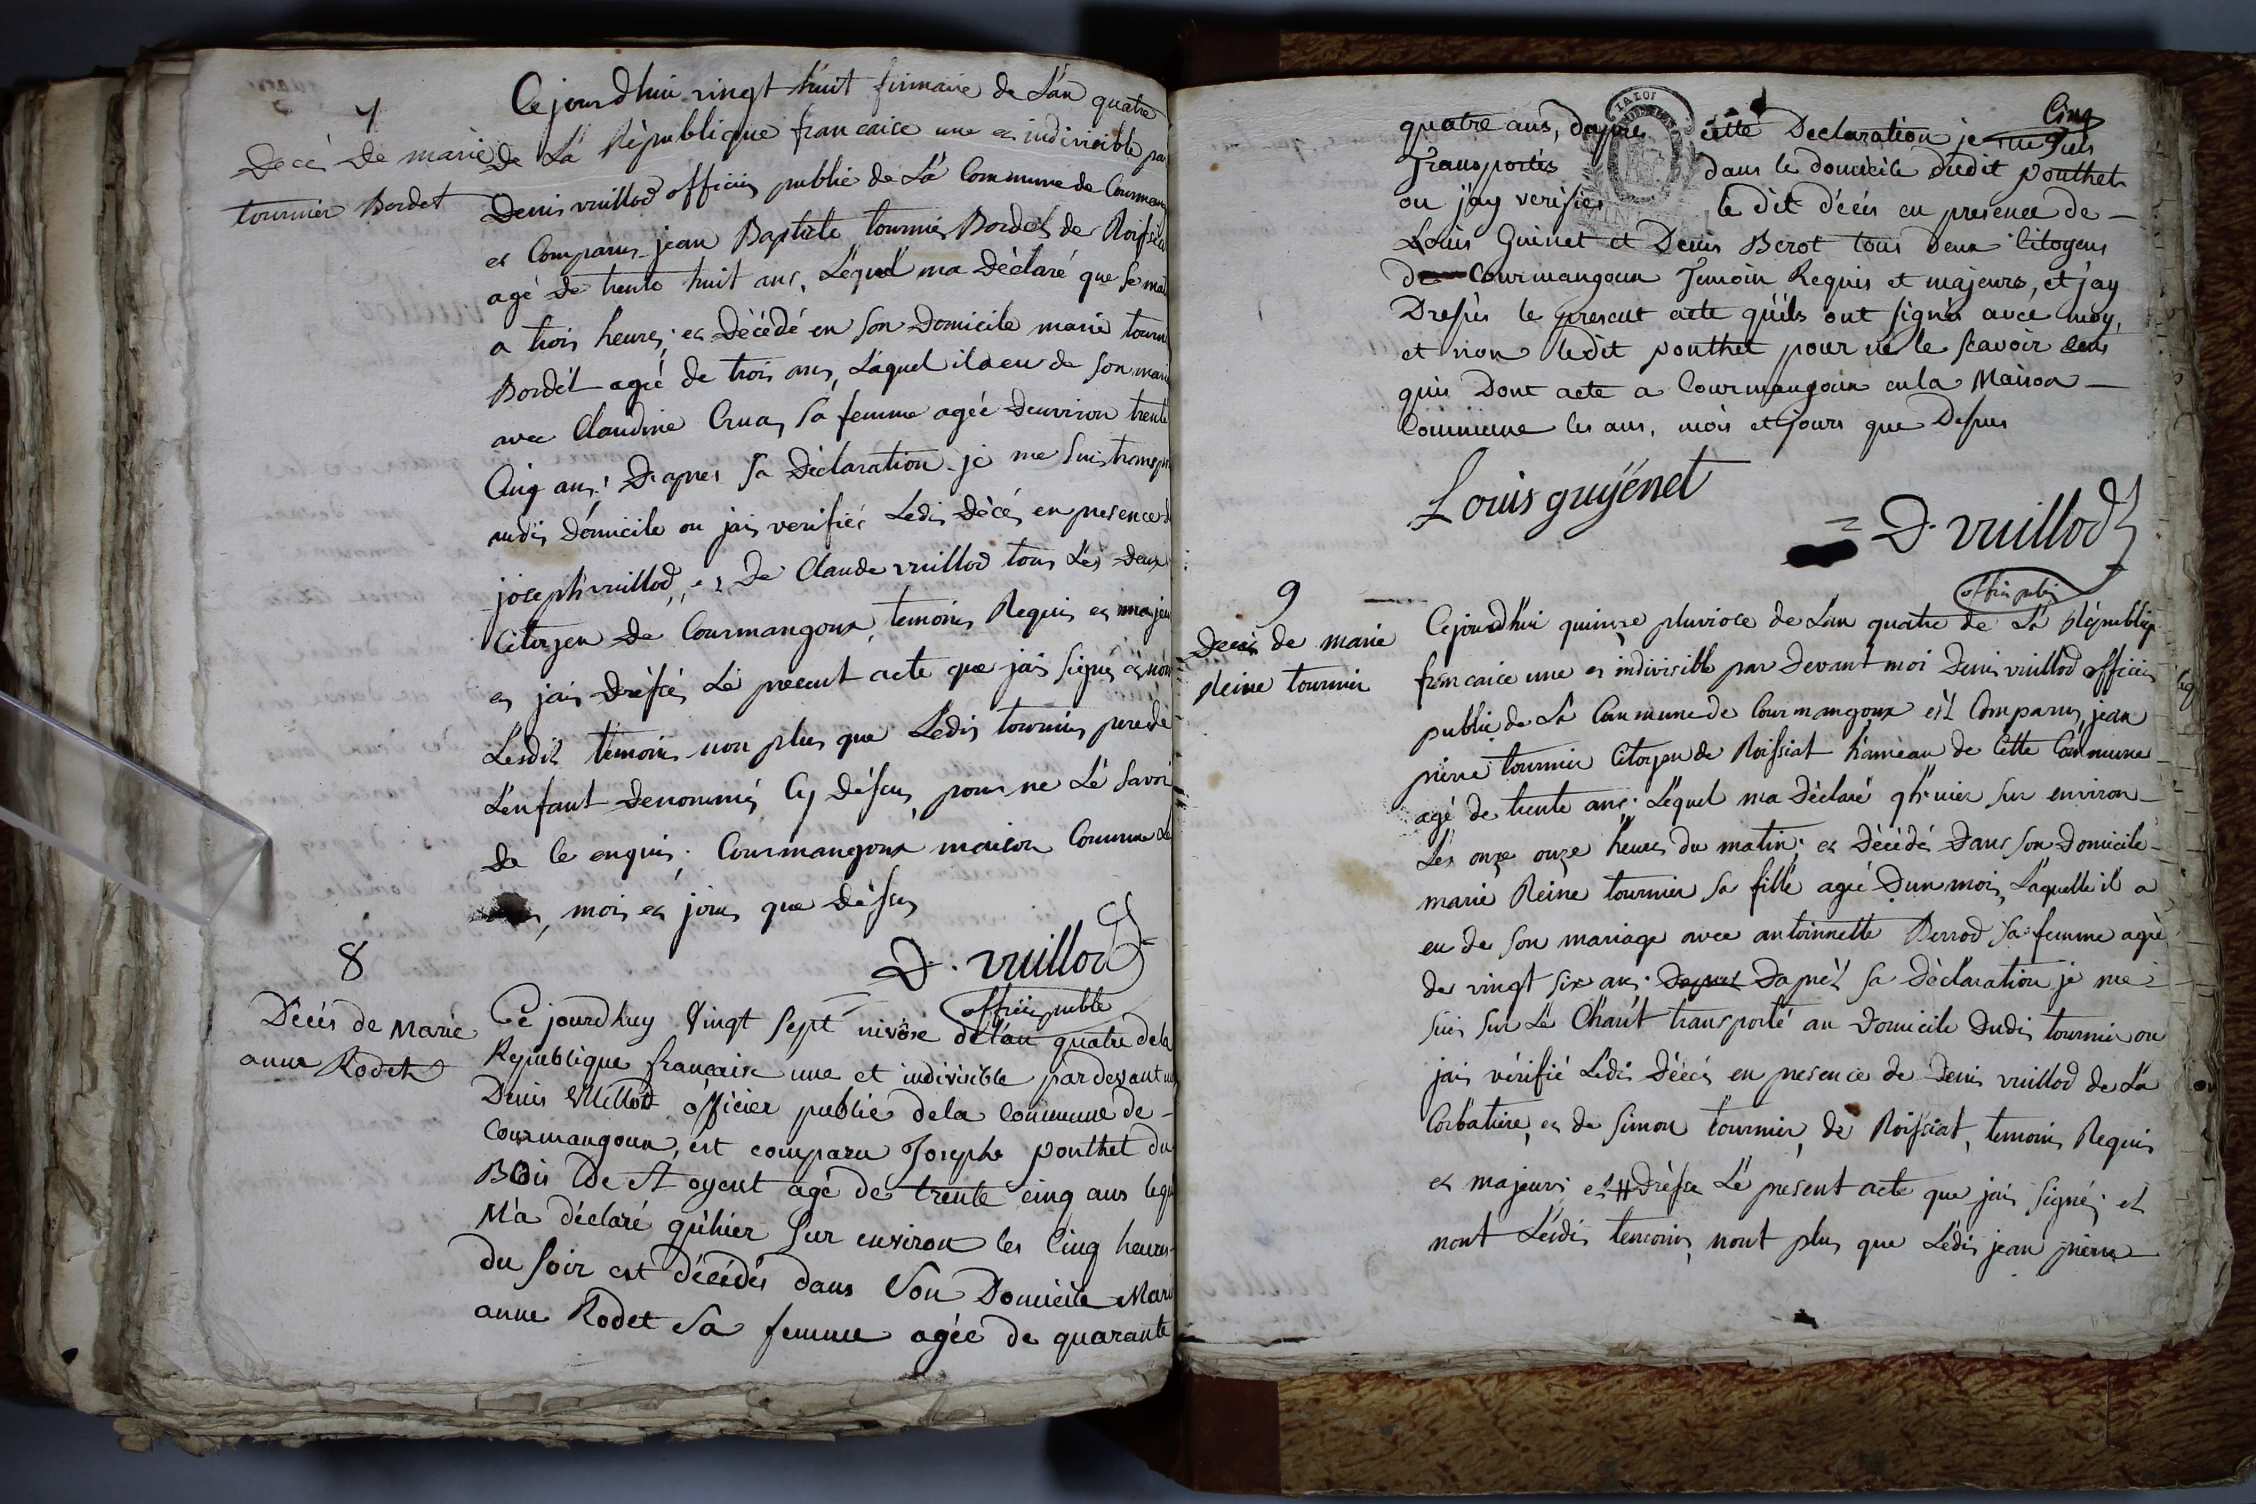 7
Decé De marie
tournier Bordet
Cejourdhui vingt huit frimaire de L'an quatre
de La République francaice une et indivisible par
Denis vuillod officier public de La Commune de Courmang
et Comparus jean Baptiste tournier Bordet de Roissia
agé de trente huit ans, Lequel ma Déclaré que se mat
a trois heures; et Décédé en son Domicile marie tourn
Bordét agée de trois ans, Laquel il a eu de son mari
avec Claudine Cruaz sa femme agée denviron trente
Cinq ans; D'apres sa Déclaration je me suis transpo
sudis Domicile ou jais verifiée Ledis Décés en presence d
joseph vuillod, et De Claude vuillod tous Les Deux
Citoyen De Courmangoux, temoins Requis et majeu
et jais Dréssés Le present acte que jais signés et non
Lesdit temoins non plus que Ledis tournier pere de
L'enfant Denommés Cy Déssus, pour ne Le savoi
De ce enquis; Courmangoux maison Commune Le
mois et jours que Déssus
D. vuillod
officier public
8
Décés de Marie
anne Rodet
Ce jourdhuy Vingt sept nivôse de l'an quatre dela
Republique française une et indivisible pardevant m
Denis Vuillod officier public dela Commune de -
Courmangoux, est comparu Joseph ponthet du
Bois De St oyent agé de trente cinq ans lequ
M'a déclaré qu'hier sur environ les Cinq heures
du soir est décédés dans son Domicile Mari
anne Rodet sa femme agée de quarante
Cinq
quatre ans, dapres cette Declaration je me suis
Transportés dans le domicile dudit ponthet
ou j'ay verifiés le dit décés en presence de -
Louis Guinet et Denis Berot tous deux Citoyens
de Courmangoux Temoin Requis et majeurs, et j'ay
Dressés le present acte qu'ils ont signés avec moy,
et non ledit ponthet pour ne le scavoir den
quis Dont acte a Courmangoux en la Maison -
Commune les ans, mois et jours que Dessus
Louis guyénet
D. vuillod
officier public
9
Decés de marie
Reine tournier
Cejourdhui quinze pluviose de L'an quatre de La République
francaice une et indivisible par Devant moi Denis vuillod officier
public de La Commune de Courmangoux est Comparus, jean
pierre tournier Citoyen de Roissiat hameau de Cette Commune
agé de trente ans; Léquel ma Déclaré qu'hier sur environ
Les onze onze heures du matin; et Décédés Dans son Domicile
marie Reine tournier sa fille agée D'un mois, Laquelle il a
eu de son mariage avec antoinnette Perrod sa femme agée
de vingt six ans; Dapres Daprès sa Déclaration je me
suis sur Le Chan't transporté au Domicile Dudis tournier ou
jais vérifié Ledis Décés en presence de Denis vuillod de La
Corbatiere, et de Simon tournier, de Roissiat, temoins Requis
et majeurs; et Dréssé Le present acte que jais signé; et
nont Lesdis temoins, nont plus que Ledis jean pierre